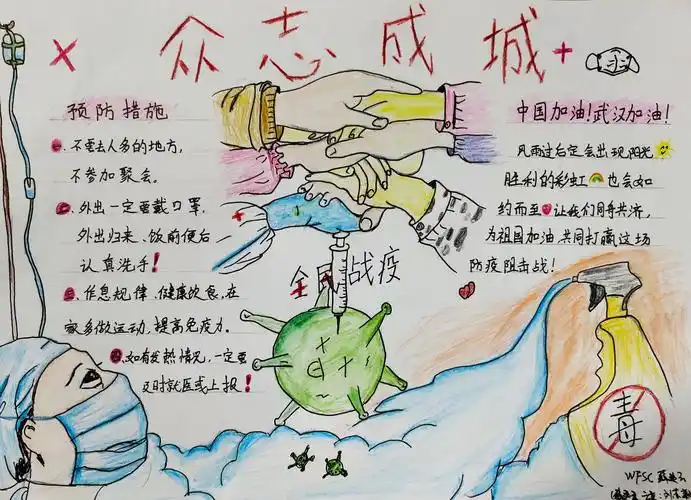 众志成城
预防措施
一、不要去人多的地方,
不参加聚会。
二、外出一定要戴口罩,
外出归来、饭前便后
认真洗手!
三、作息规律、健康饮食,在
家多做运动,提高免疫力。
四、如有发热情况,一定要
及时就医或上报!
全民战疫
中国加油!武汉加油!
风雨过后定会出现阳光,
胜利的彩虹也会如
约而至让我们同舟共济,
为祖国加油,共同打赢这场
防疫阻击战!
毒
WFSC